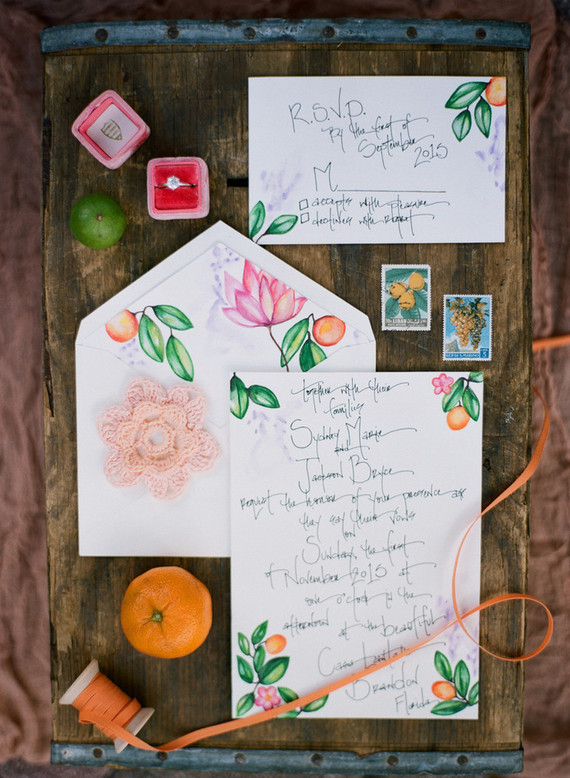 R.S.V.P.
By the first of
September
2015
M
accepts with pleasure
declines with regret
together with their
families
Sydney Marie
and
Jackson Bryce
request the honor of your presence as
they say their vows
on
Sunday, the first
of November 2015 at
one o'clock in the
afternoon at the beautiful
Casa
Brandon
Florida